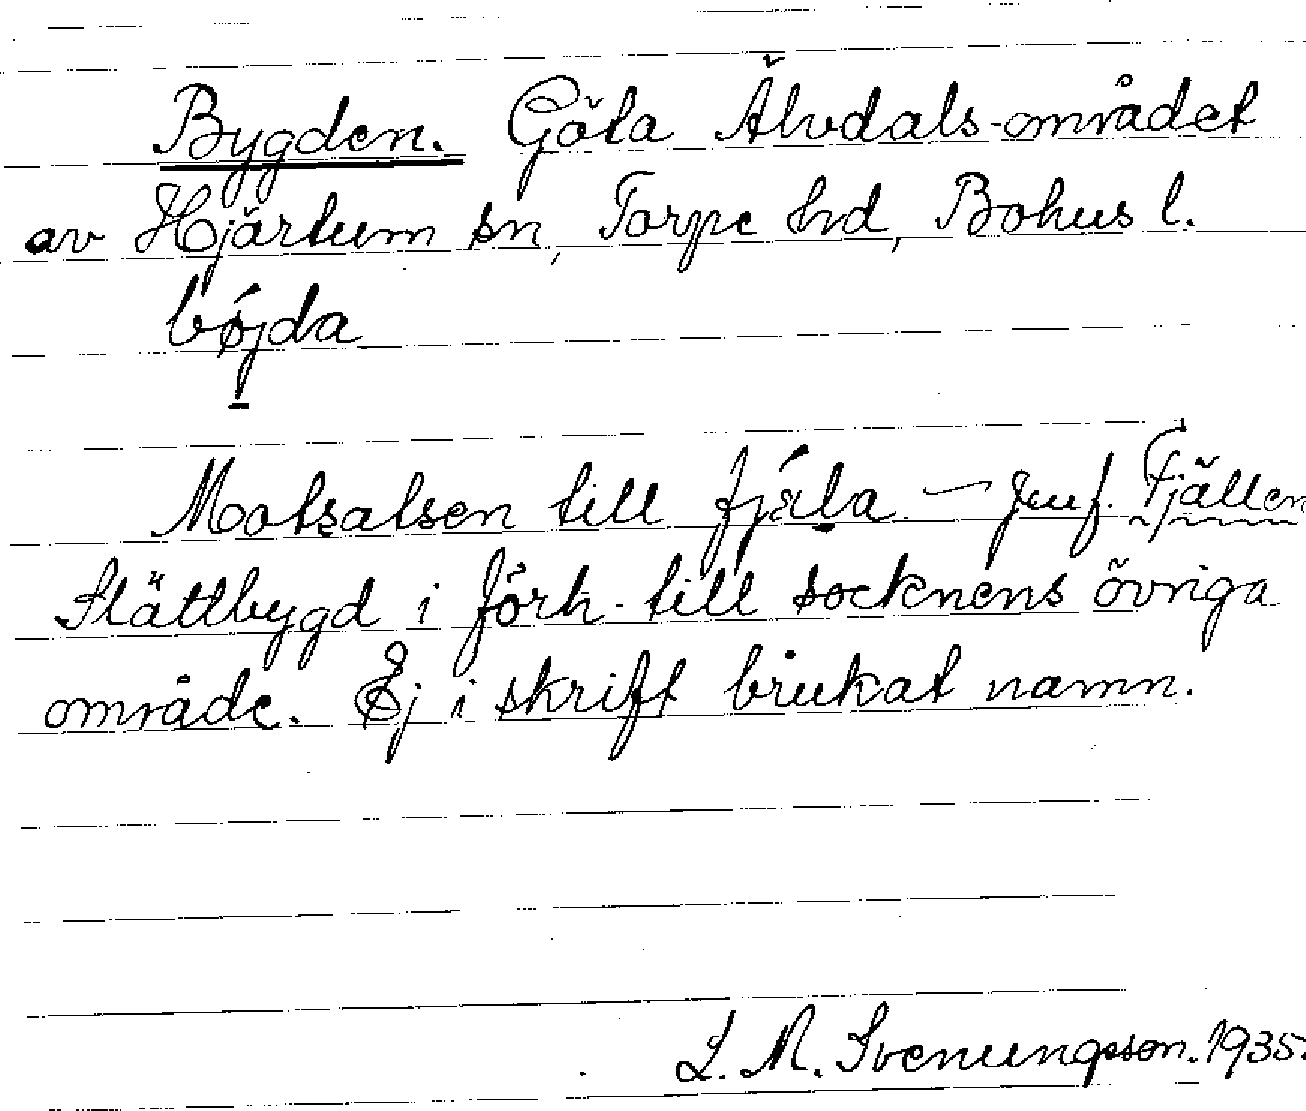 Bygden. Göta Älvdals-området
av Hjärtum sn, Torpe hd, Bohus l.
bǿjda
Motsatsen till fjäla – Jmf. Fjällen
Slättbygd i förh. till socknens övriga
område. Ej i skrift brukat namn.
L. M. Svenungsson. 1935.